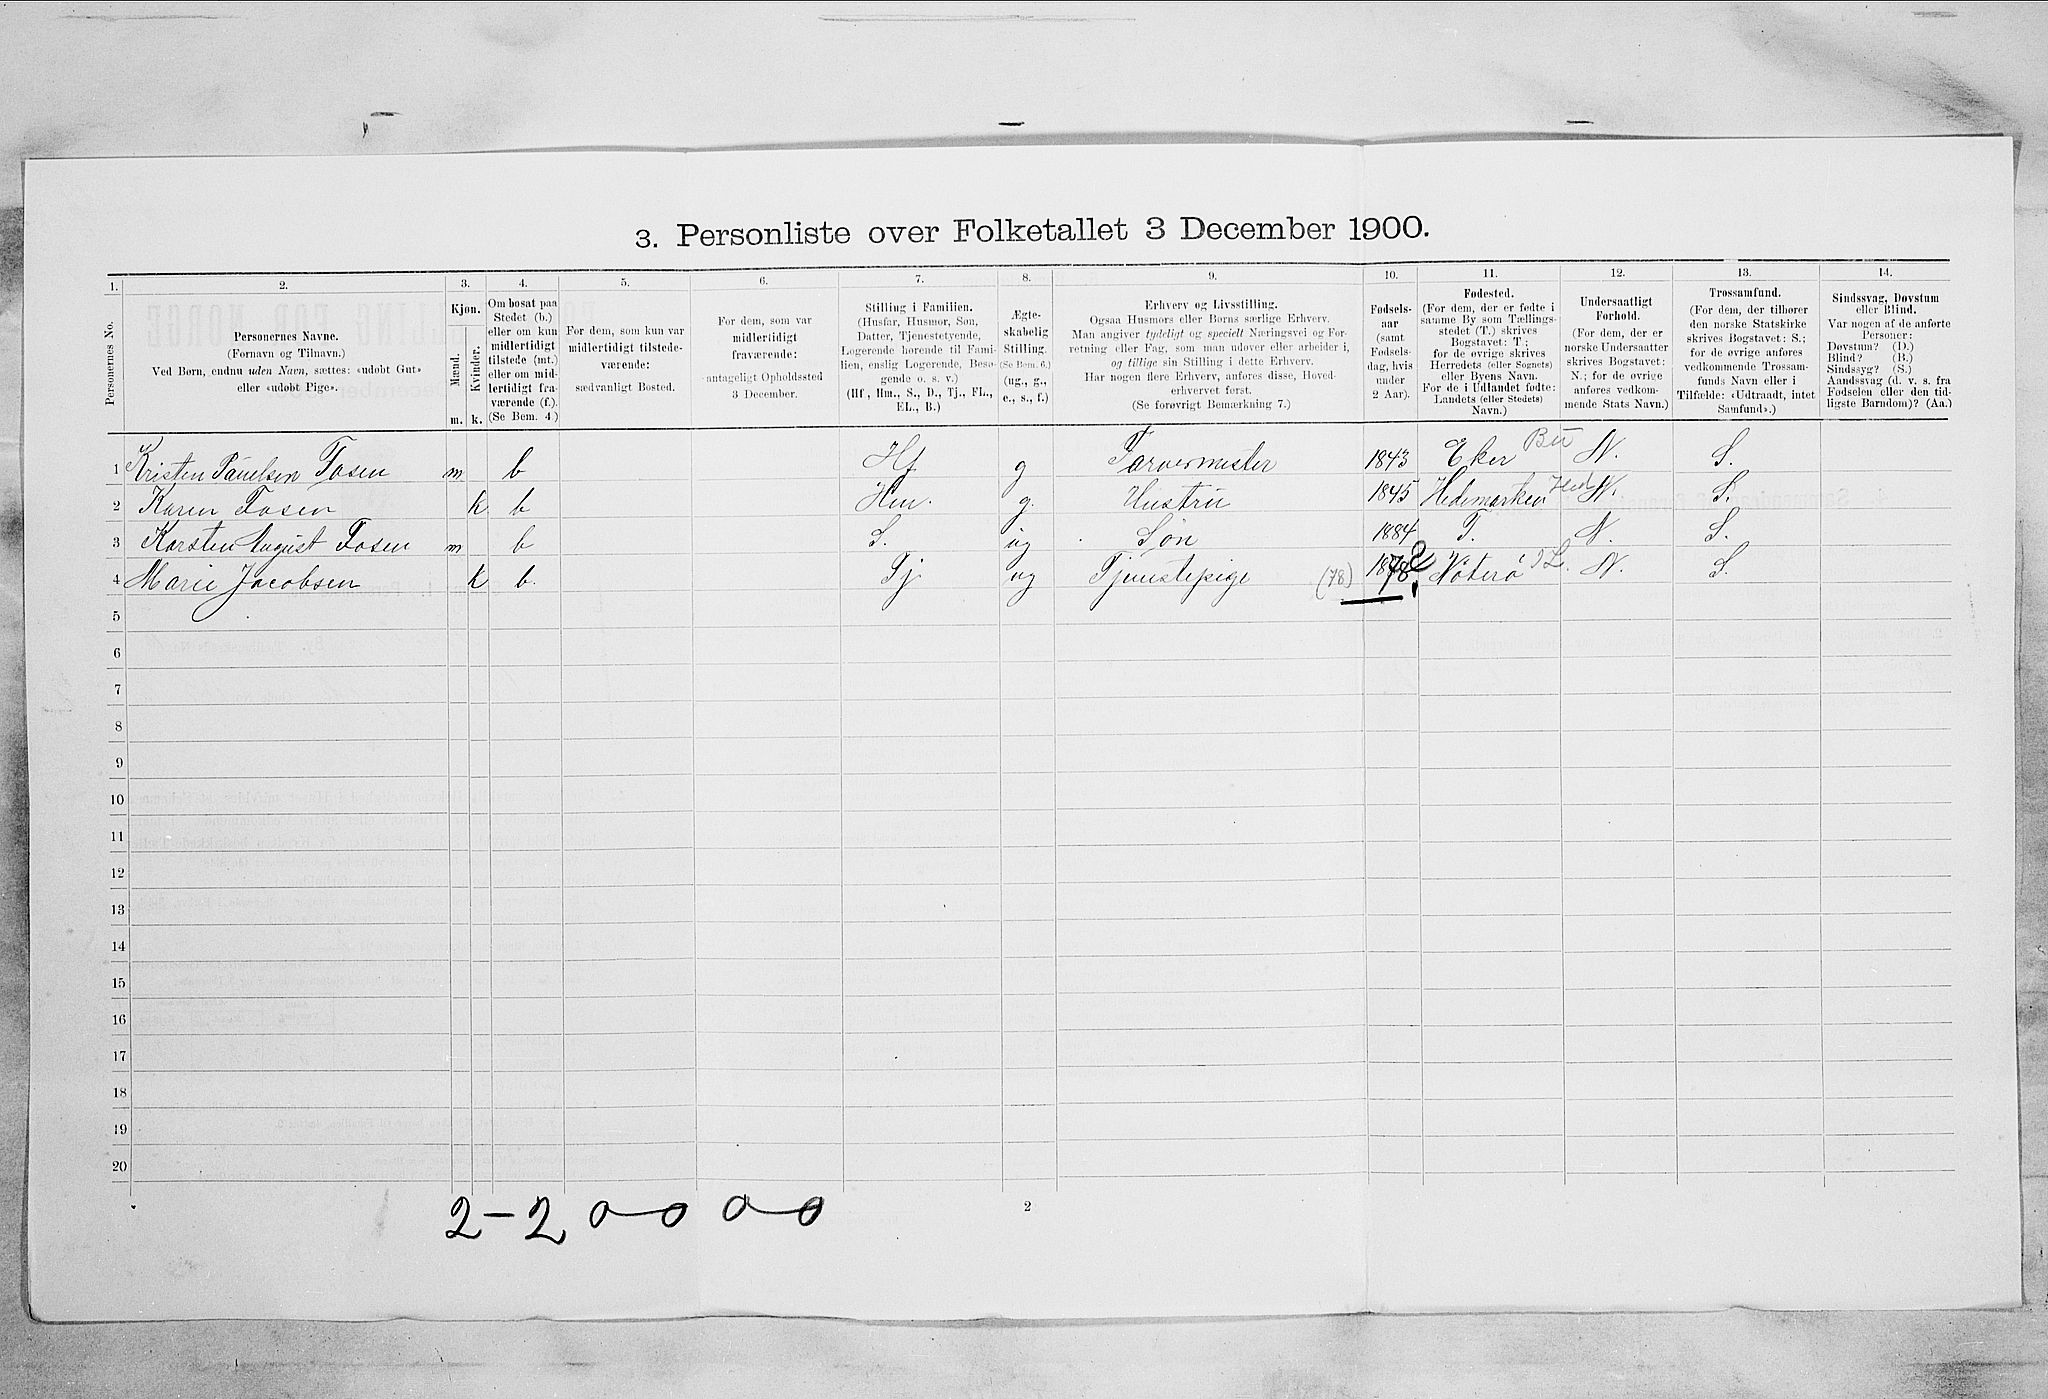 3. Personliste over Folketallet 3 December 1900.
1. 2. 3. 4. 5. 6. 7. 8. 9. 10. 11. 12. 13. 14.
Personernes No.
Personernes Navne.
(Fornavn og Tilnavn.)
Ved Børn, endnu uden Navn, sættes: «udøbt Gut»
eller «udøbt Pige».
Kjøn.
Mænd.
Kvinder.
m. k.
Om bosat paa
Stedet (b.)
eller om kun
midlertidigt
tilstede (mt.)
eller om mid-
lertidigt fra-
værende (f.).
(Se Bem. 4.)
For dem, som kun var
midlertidigt tilstede-
værende:
sædvanligt Bosted.
For dem, som var
midlertidigt
fraværende:
antageligt Opholdssted
3 December.
Stilling i Familien.
(Husfar, Husmor, Søn,
Datter, Tjenestetyende,
Logerende hørende til Fami-
lien, enslig Logerende, Besø-
gende o. s. v.)
(Hf., Hm., S., D., Tj., FL.,
EL., B.)
Ægte-
skabelig
Stilling.
(Se Bem. 6.)
(ug., g.,
e., s., f.)
Erhverv og Livsstilling.
Ogsaa Husmors eller Børns særlige Erhverv.
Man angiver tydeligt og specielt Næringsvei og For-
retning eller Fag, som man udøver eller arbeider i,
og tillige sin Stilling i dette Erhverv.
Har nogen flere Erhverv, anføres disse, Hoved-
erhvervet først.
(Se forøvrigt Bemærkning 7.)
Fødsels-
aar
(samt
Fødsels-
dag, hvis
under
2 Aar).
Fødested.
(For dem, der er fødte i
samme By som Tællings-
stedet (T.) skrives
Bogstavet: T.;
for de øvrige skrives
Herredets (eller Sognets)
eller Byens Navn.
For de i Udlandet fødte:
Landets (eller Stedets)
Navn.)
Undersaatligt
Forhold.
(For dem, der er
norske Undersaatter
skrives Bogstavet:
N.; for de øvrige
anføres vedkom-
mende Stats Navn.)
Trossamfund.
(For dem, der tilhører
den norske Statskirke
skrives Bogstavet: S.;
for de øvrige anføres
vedkommende Trossam-
funds Navn eller i
Tilfælde: «Udtraadt, intet
Samfund».)
Sindssvag, Døvstum
eller Blind.
Var nogen af de anførte
Personer:
Døvstum? (D.)
Blind? (B.)
Sindssyg? (S.)
Aandssvag (d. v. s. fra
Fødselen eller den tid-
ligste Barndom)? (Aa.)
1 Kristen Paulsen Fosen m b Hf g Farvermester 1843 Eker Bu N. S.
2 Karen Fosen k b Hm. g. Hustru 1845 Hedemarken Hed N. S.
3 Karsten August Fosen m b S. ug Søn 1884 T. N. S.
4 Marie Jacobsen k b. Tj ug Tjenestepige (78) Nøterø JL. N. S.
5
6
7
8
9
10
11
12
13
14
15
16
17
18
19
20
2-2 0-0 0-0
2